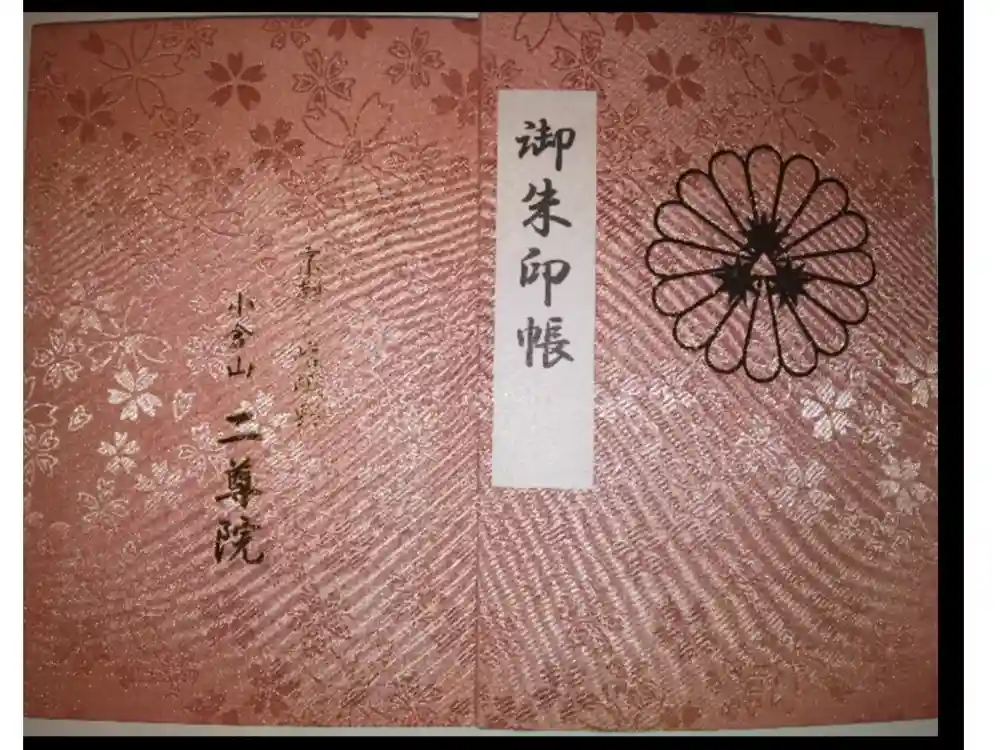 御朱印帳
京都 嵯峨野
小倉山 二尊院